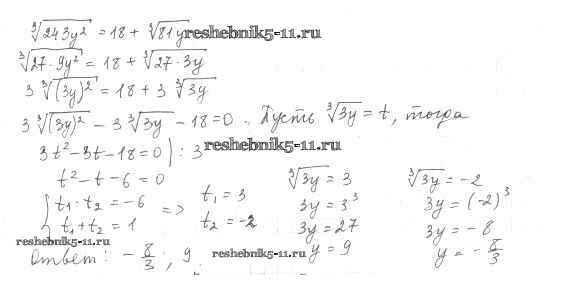 ∛243y² = 18 + ∛81y reshebnik5-11.ru
∛27·9y² = 18 + ∛27·3y
3∛(3y)² = 18 + 3∛3y
3∛(3y)² - 3∛3y - 18 = 0. Пусть ∛3y = t, тогда
3t² - 3t - 18 = 0 | : 3 reshebnik5-11.ru
t² - t - 6 = 0
{ t₁ · t₂ = -6
t₁ + t₂ = 1
=> t₁ = 3
t₂ = -2
∛3y = 3
3y = 3³
3y = 27
y = 9
∛3y = -2
3y = (-2)³
3y = -8
y = -8/3
reshebnik5-11.ru
Ответ: -8/3; 9. reshebnik5-11.ru